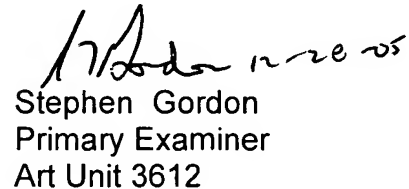 12-20-05
Stephen Gordon
Primary Examiner
Art Unit 3612